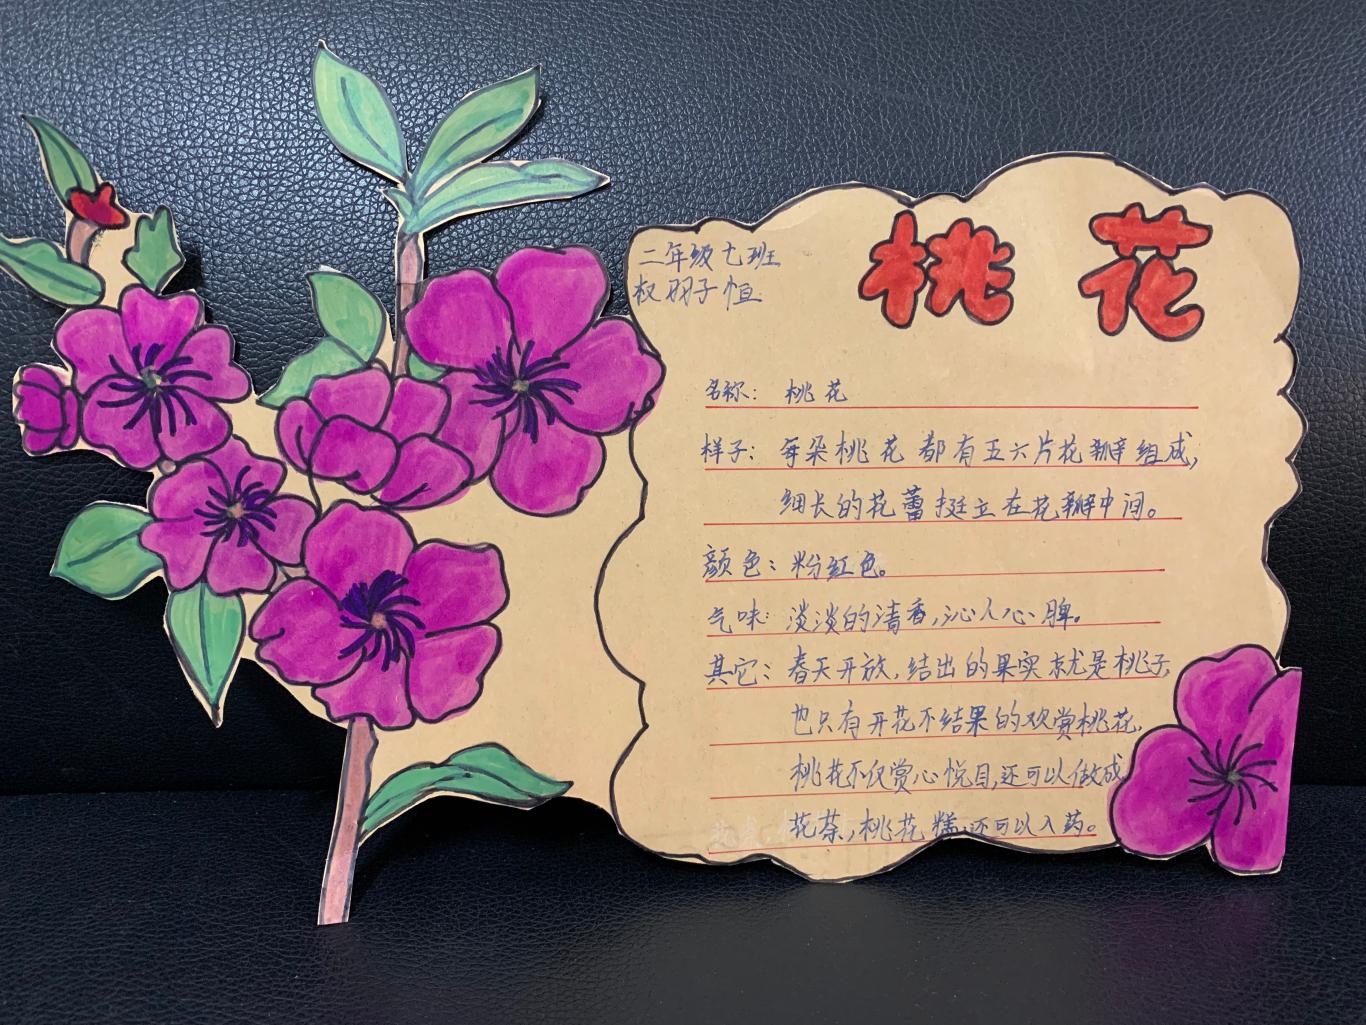 二年级七班
权羽子恒
桃花
名称：桃花
样子：每朵桃花都有五六片花瓣组成，
细长的花蕾挺立在花瓣中间。
颜色：粉红色。
气味：淡淡的清香，沁人心脾。
其它：春天开放，结出的果实就是桃子，
也只有开花不结果的观赏桃花，
桃花不仅赏心悦目，还可以做成
花茶，桃花糕，还可以入药。